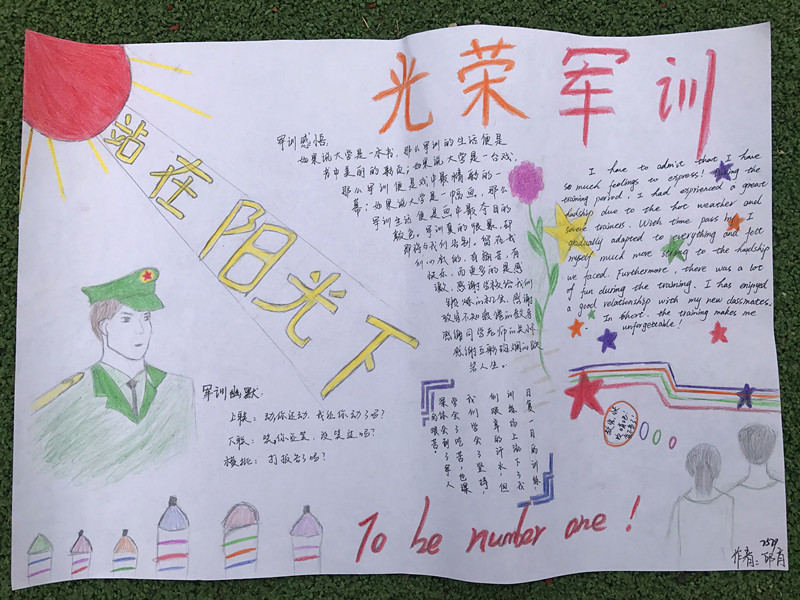 光荣军训
站在阳光下
军训感悟
如果说大学是一本书，那么军训的生活便是
书中美丽的彩页；如果说大学是一台戏，
那么军训便是戏中最精彩的一
幕；如果说大学是一幅画，那么
军训生活便是画中最夺目的
颜色。军训真的快乐，却
即将与我们告别，留在我
们心底的，有辛苦，有
快乐，而更多的是感
激，感谢学校给我们
锻炼的机会，感谢
教官不知疲倦的教导
感谢同学老师的关怀
感谢
I have to admit that I have
so much feelings to express! During the
training period, I had exprienced a great
hardship due to the hot weather and
severe trainers. With time pass by, I
gradually adapted to everything and felt
myself much more strong to the hardship
we faced. Furthermore, there was a lot
of fun during the training. I has enjoyed
a good relationship with my new classmates.
In short, the training makes me
unforgettable!
军训幽默：
上联：动你还动，我让你动了吗？
下联：笑你还笑，没笑过吗？
横批：打报告了吗？
日复一日的训练，
训练场上洒下了我
们艰辛的汗水，但
我们学会了坚持，
学会了吃苦，也深
深体会到了军人
的艰苦。
To be number one!
作者：邱肖